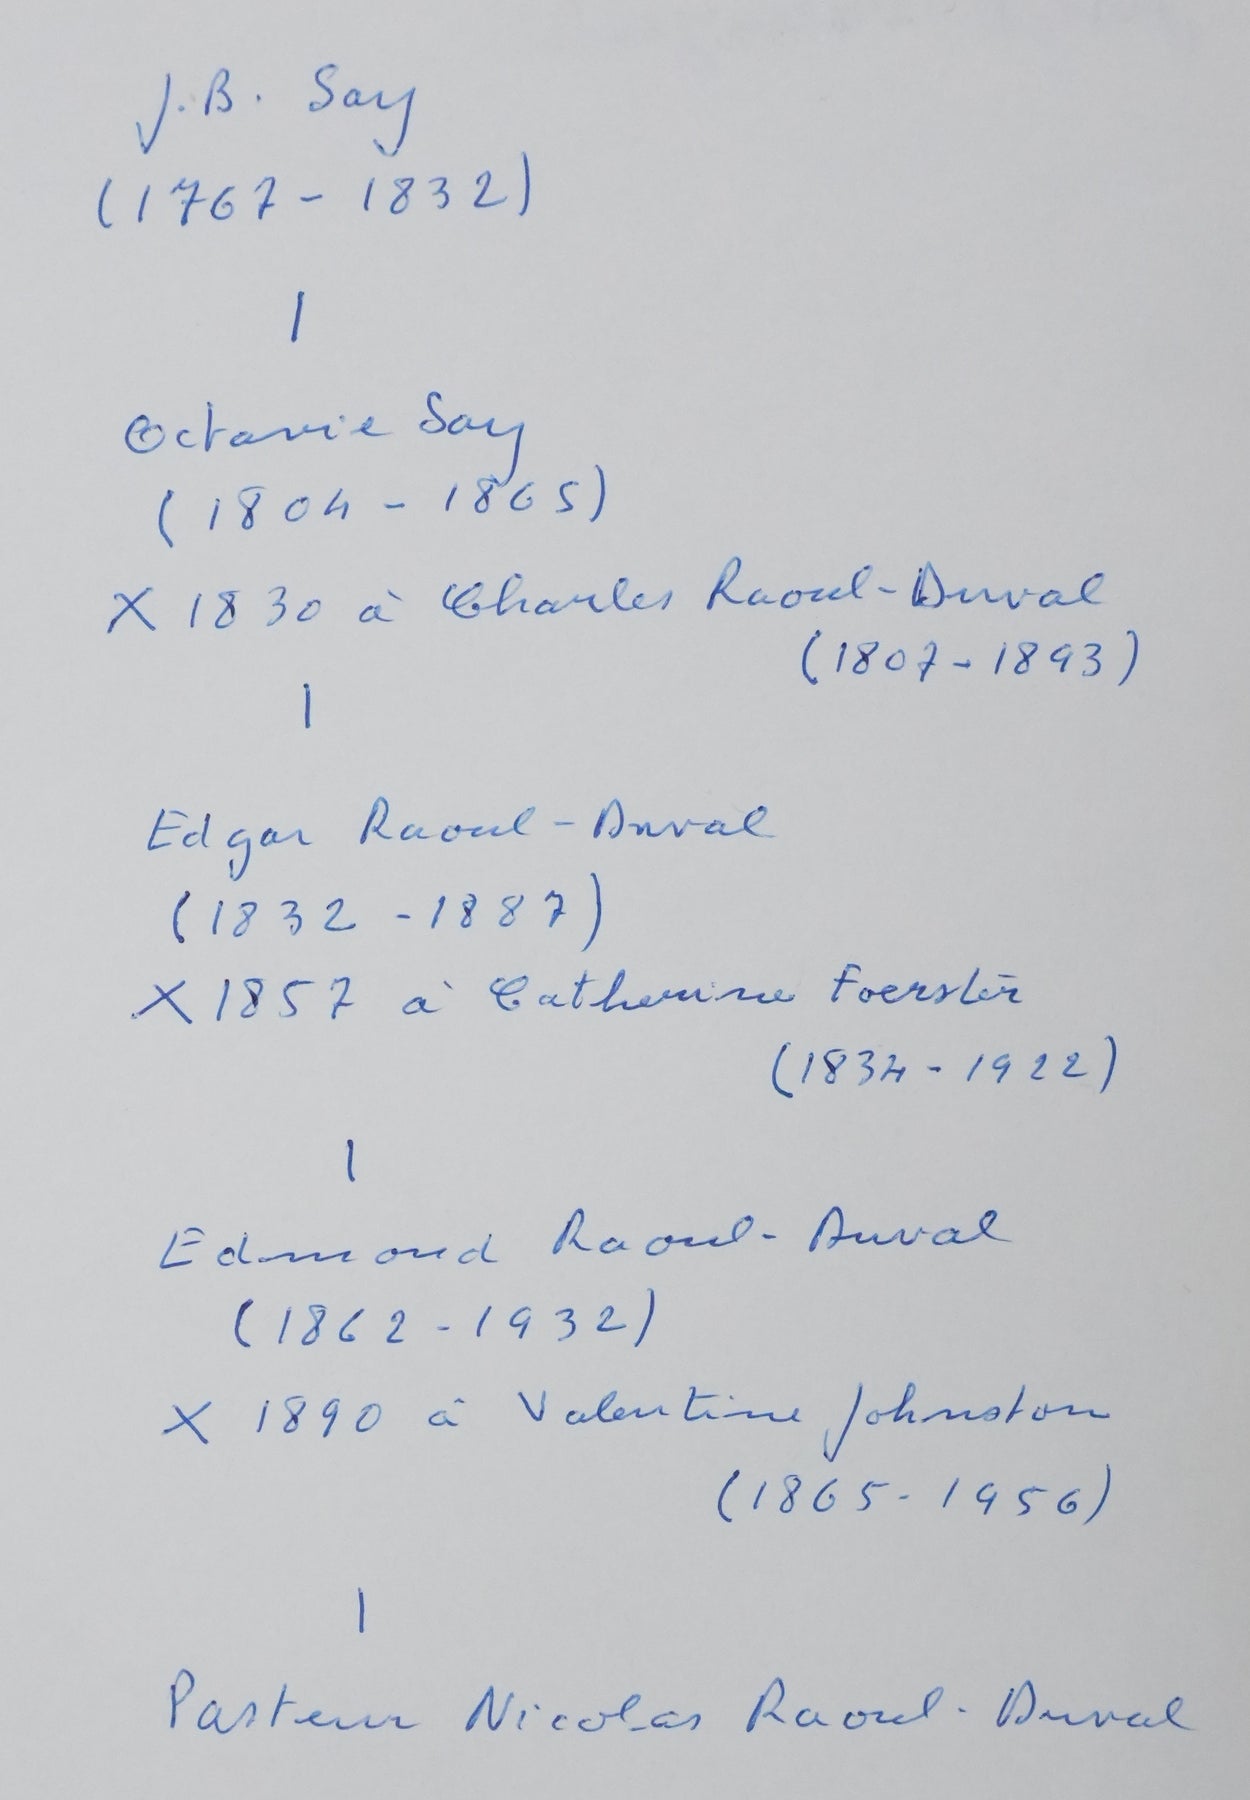 J.B. Say
(1767 - 1832)
|
Octavie Say
(1804 - 1865)
X 1830 à Charles Raoul-Duval
(1807 - 1893)
|
Edgar Raoul-Duval
(1832 - 1887)
X 1857 à Catherine Foerster
(1834 - 1922)
|
Edmond Raoul-Duval
(1862 - 1932)
X 1890 à Valentine Johnston
(1865 - 1956)
|
Pasteur Nicolas Raoul-Duval